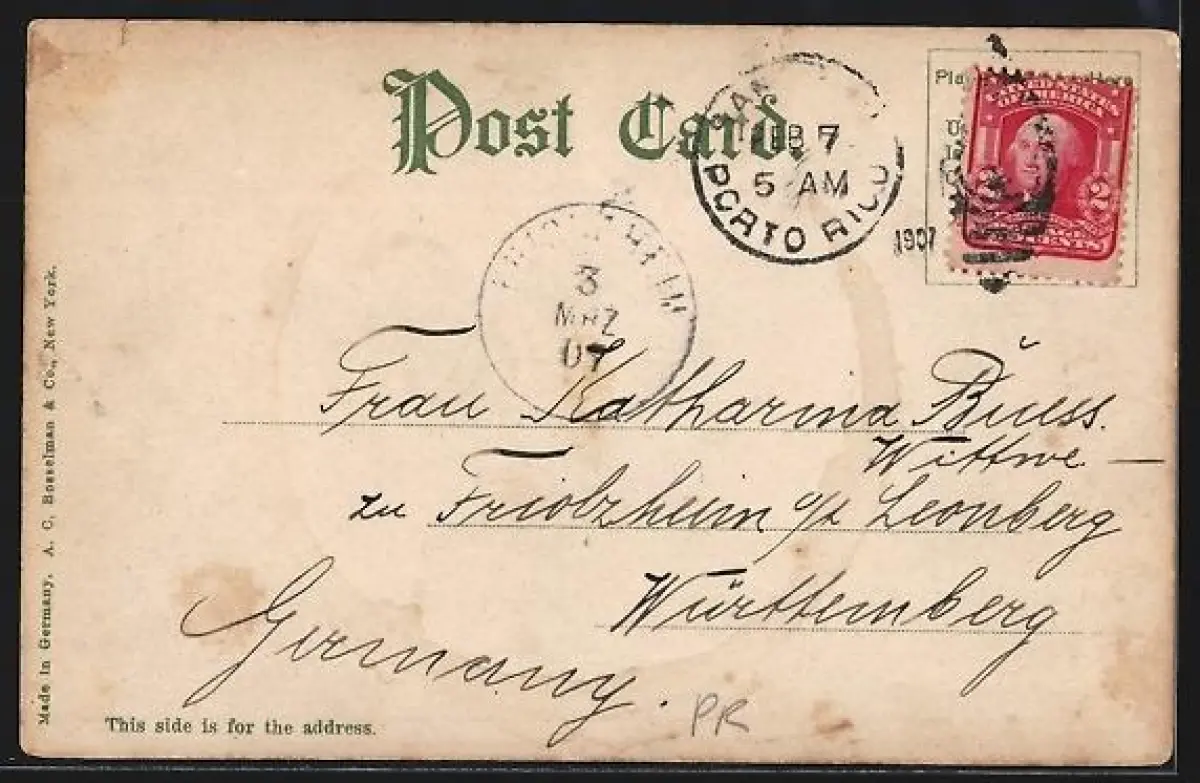 Post Card.
SAN
FEB 7
5 AM
PORTO RICO
1907
UNITED STATES
OF AMERICA
2 2
CENTS
3
MRZ
07
Frau Katharina Buess.
Wittwe —
zu Friolzheim o/x Leonberg
Württemberg
Germany.
PR
This side is for the address.
Made in Germany. A. C. Bosselman & Co., New York.